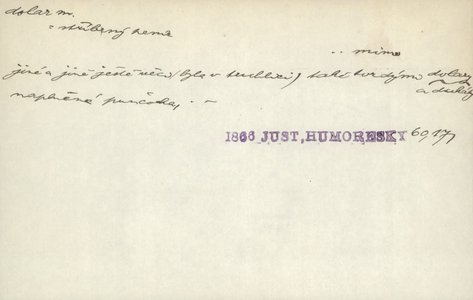 dolar m.
: stříbrný peníz
.. mimo
jiné a jiné ještě věci (byla v truhlici) také tvrdými dolary
a dukáty
naplněná punčocha, . –
1866 JUST, HUMORESKY 60, 17